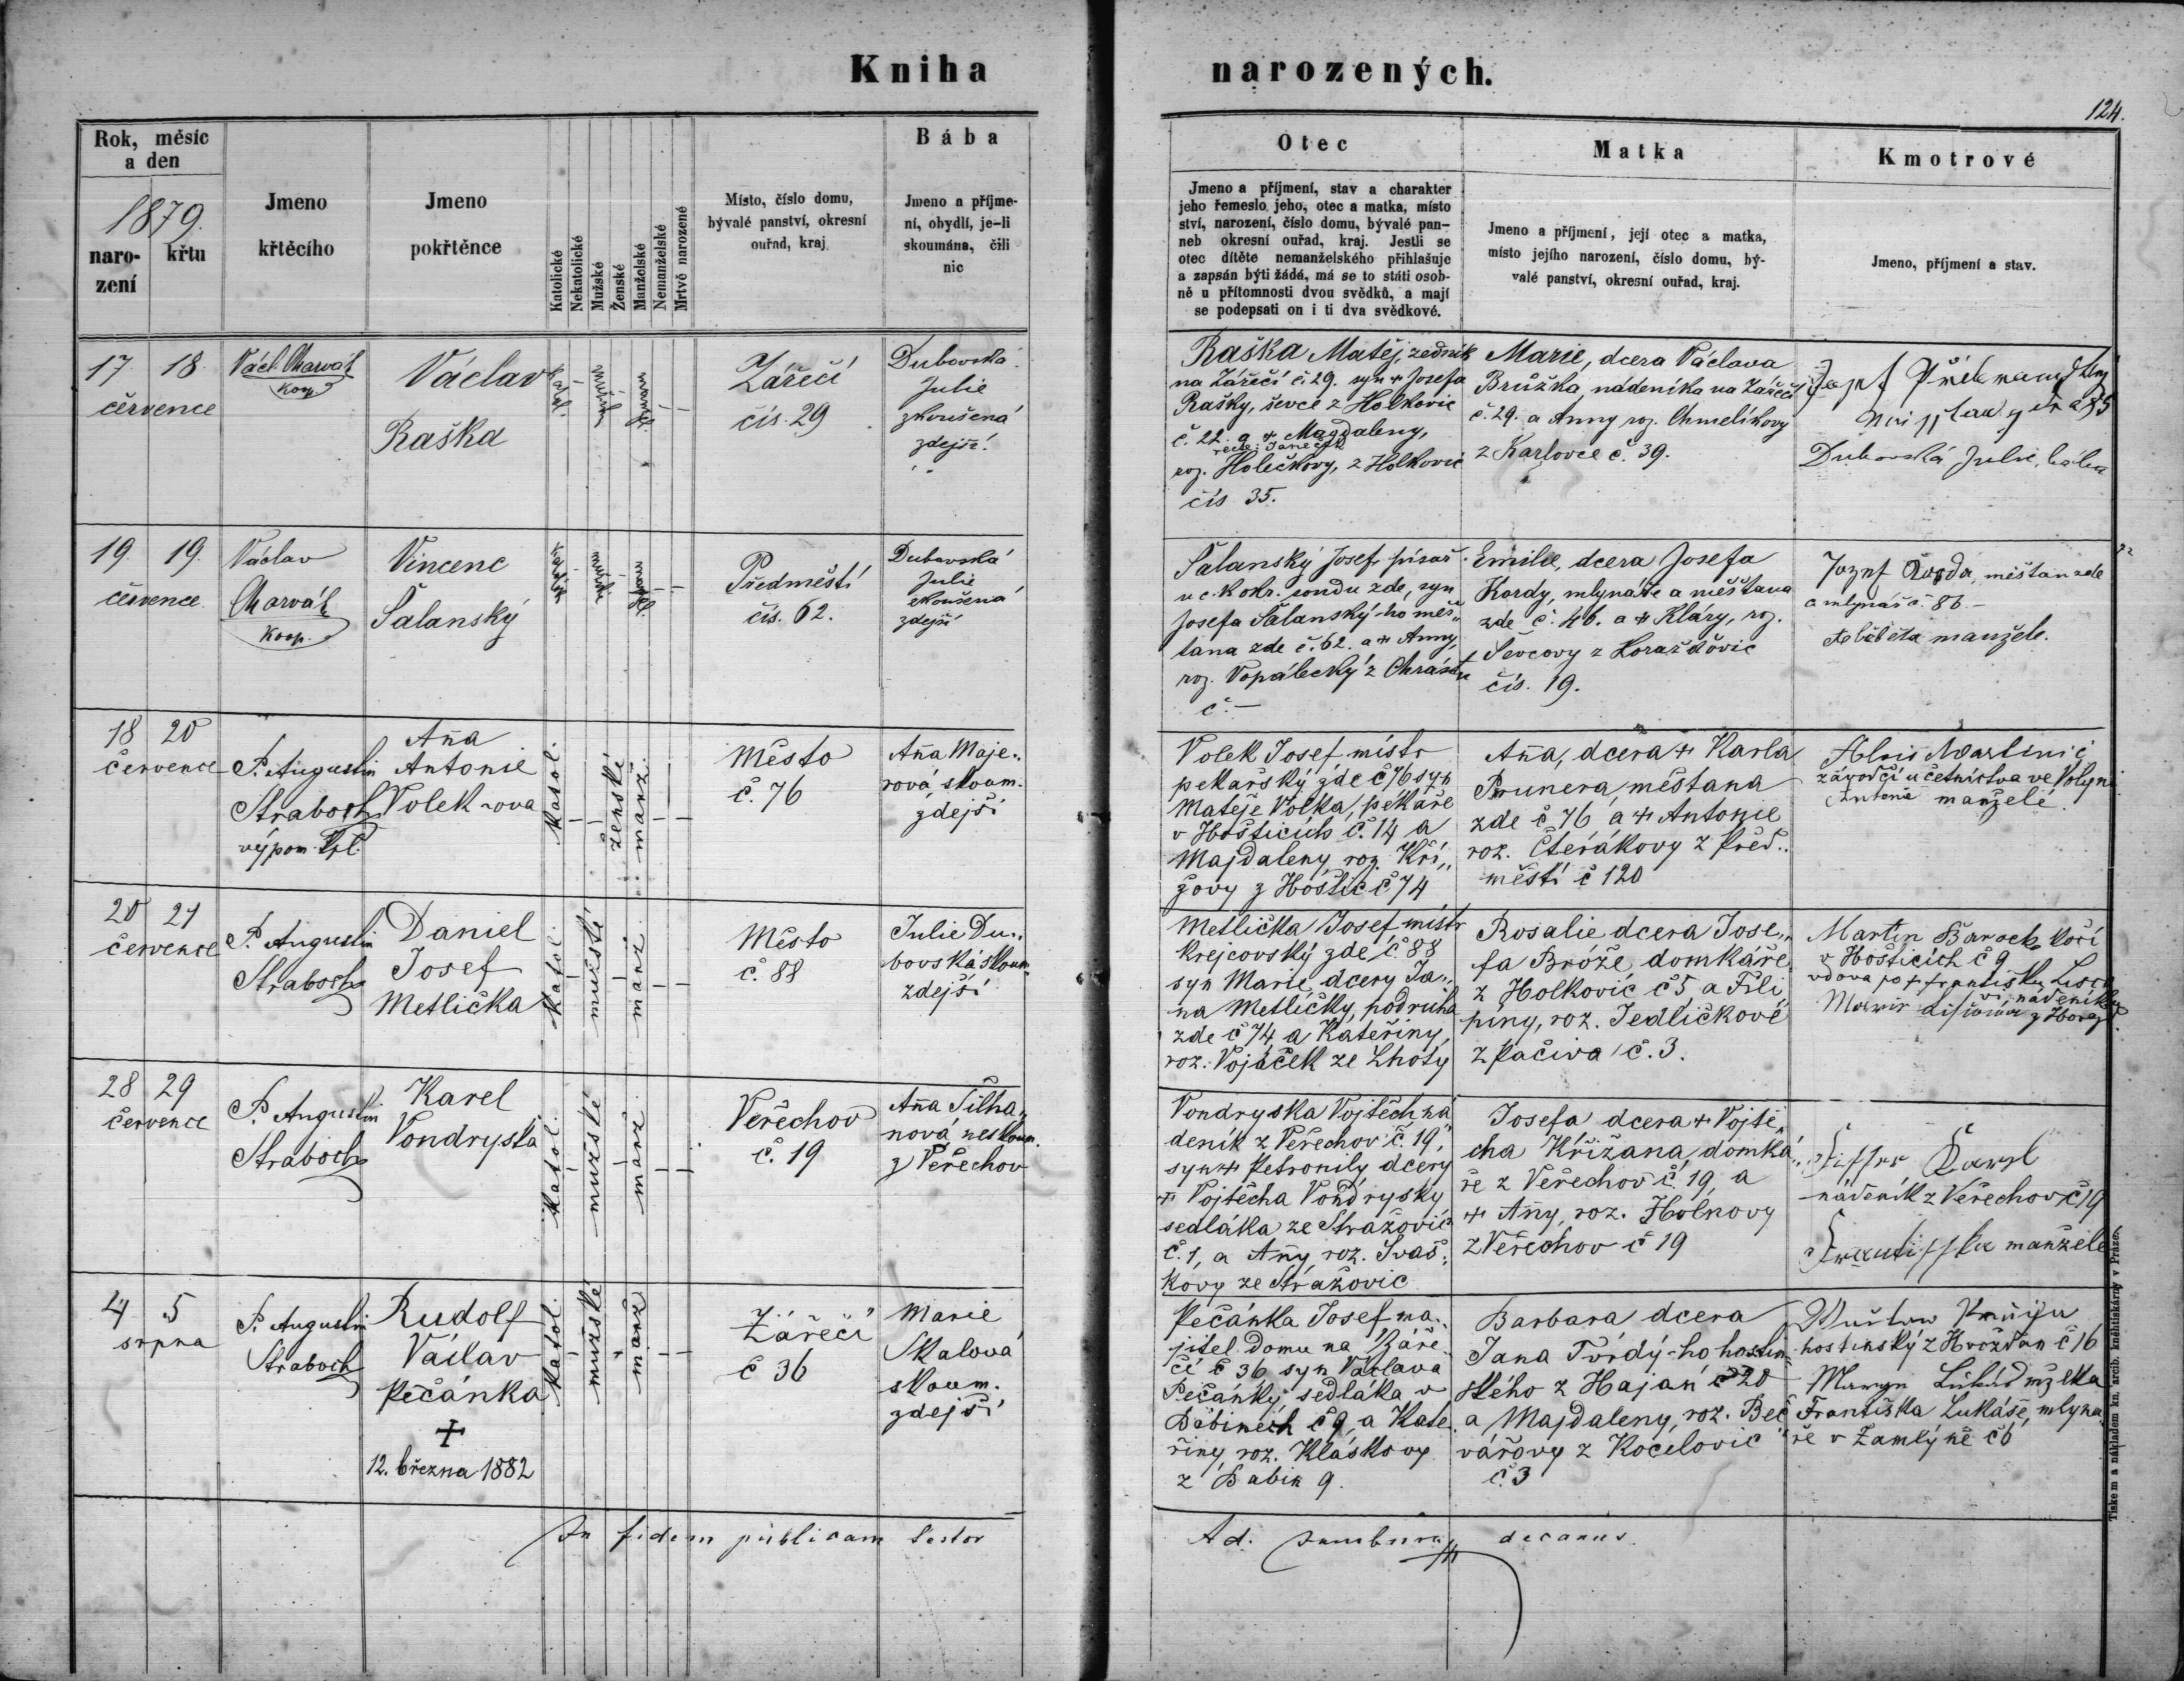 Kniha
narozených.
124.
Rok, měsíc
a den
1879.
naro-
zení
křtu
Jmeno
křtěcího
Jmeno
pokřtěnce
Katolické
Nekatolické
Mužské
Ženské
Manželské
Nemanželské
Mrtvě narozené
Místo, číslo domu,
bývalé panství, okresní
ouřad, kraj
Bába
Jmeno a příjme-
ní, obydlí, je-li
skoumána, čili
nic
Otec
Jmeno a příjmení, stav a charakter
jeho řemeslo jeho, otec a matka, místo
ství, narození, číslo domu, bývalé pan-
neb okresní ouřad, kraj. Jestli se
otec dítěte nemanželského přihlašuje
a zapsán býti žádá, má se to státi osob-
ně u přítomnosti dvou svědků, a mají
se podepsati on i ti dva svědkové.
Matka
Jmeno a příjmení, její otec a matka,
místo jejího narození, číslo domu, bý-
valé panství, okresní ouřad, kraj.
Kmotrové
Jmeno, příjmení a stav.
17. 18.
července
Václ. Charvát
koop.
Václav
Raška
Zářečí
čís. 29
Dubovská
Julie
zkoušená
zdejší
Raška Matěj, zedník
na Zářečí č. 29. syn + Josefa
Rašky, ševce z Holkovic
č. 22. a + Magdaleny,
roz. Holečkovy, z Holkovic
čís 35.
Marie, dcera Václava
Brůžka, nádeníka na Zářečí
č. 29. a Anny roz. Chmelíkovy
z Karlovce č. 39.
Dubovská Julie, bába
19. 19.
července
Václav
Charvát
koop.
Vincenc
Šalanský
Předměstí
čís. 62.
Dubovská
Julie
zkoušená
zdejší
Šalanský Josef, písař
u c. k. okr. soudu zde, syn
Josefa Šalanský-ho měš„
tana zde č. 62. a + Anny,
roz. Vopálecký z Chrástu
č. —
Emilie, dcera Josefa
Kordy, mlynáře a měštana
zde č. 46. a + Kláry, roz.
Ševcovy z Horažďovic
čís. 19.
Jozef Korda, měštan zde
a mlynář č. 86. –
Alžběta manžele.
18 20
července
P. Augustin
Straboch
výpom. kpl.
Aña
Antonie
Volek-ova
katol.
ženské
manž.
Město
č. 76
Aña Maje„
rová, skoum.
zdejší
Volek Josef, místr
pekařský zde č 76 syn
Matěje Volka, pekaře
v Hošticích č. 14 a
Majdaleny, roz. Kří„
žovy z Hoštic č 74
Aña, dcera + Karla
Prunera, měštana
zde č 76 a + Antonie
roz. Čterákovy z Před„
městí č 120
Alois Martinic
závodčí u četnictva ve Volyni
Antonie manželé.
20 21
července
P. Augustin
Straboch
Daniel
Josef
Metlička
katol.
mužské
manž.
Město
č. 88
Julie Du„
bovská skoum.
zdejší
Metlička Josef, místr
krejcovský zde č. 88
syn Marie, dcery Ja„
na Metličky, podruha
zde č 74 a Kateřiny,
roz. Vojáček ze Lhoty
Rosalie dcera Jose„
fa Brože, domkáře
z Holkovic č 5 a Fili
piny, roz. Jedličkové
z Pačiva č. 3.
Martin Baroch kočí
v Hošticích č 9
vdova po + Františku
28 29
července
P. Augustin
Straboch
Karel
Vondryska
katol.
mužské
manž.
Veřechov
č. 19
Aña Silha„
nová neskoum.
z Veřechov
Vondryska Vojtěch ná„
deník z Veřechov č. 19,
syn + Petronily dcery
+ Vojtěcha Vondrysky
sedláka ze Stražovic
č. 1, a Añy, roz. Svaš„
kovy ze Stražovic
Josefa dcera + Vojtě„
cha Křižana, domká„
ře z Veřechov č. 19, a
+ Añy, roz. Holnovy
z Veřechov č 19
Karel
nádeník z Veřechov č 19
Františka manžele
4 5
srpna
P. Augustin
Straboch
Rudolf
Václav
Pečánka
+
12. března 1882
katol.
mužské
manž
Zářečí
č 36
Marie
Skalová
skoum.
zdejší
Pečánka Josef ma„
jitel domu na Záře„
čí č 36 syn Václava
Pečánky, sedláka v
Babinech č 9, a Kate„
řiny, roz. Kláskovy
z Babin 9.
Barbara dcera
Jana Tvrdý-ho hostin„
ského z Hajan č 20
a Majdaleny, roz. Beč„
vářovy z Kocelovic
č. 3
hostinský z Hvožďan č 16
Františka Lukáše, mlyna„
ře v Zamlýně č 6
In fidem publicam testor
Ad. decanus.
Tiskem a nákladem kn. arcib. kněhtiskárny v Praze.